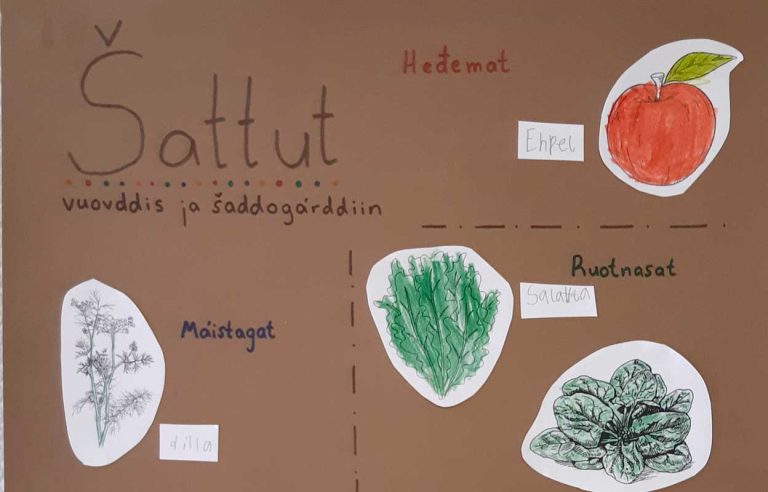 Šattut
vuovddis ja šaddogárddiin
Heđemat
Ehpel
Ruotnasat
Salahtta
Máistagat
dilla